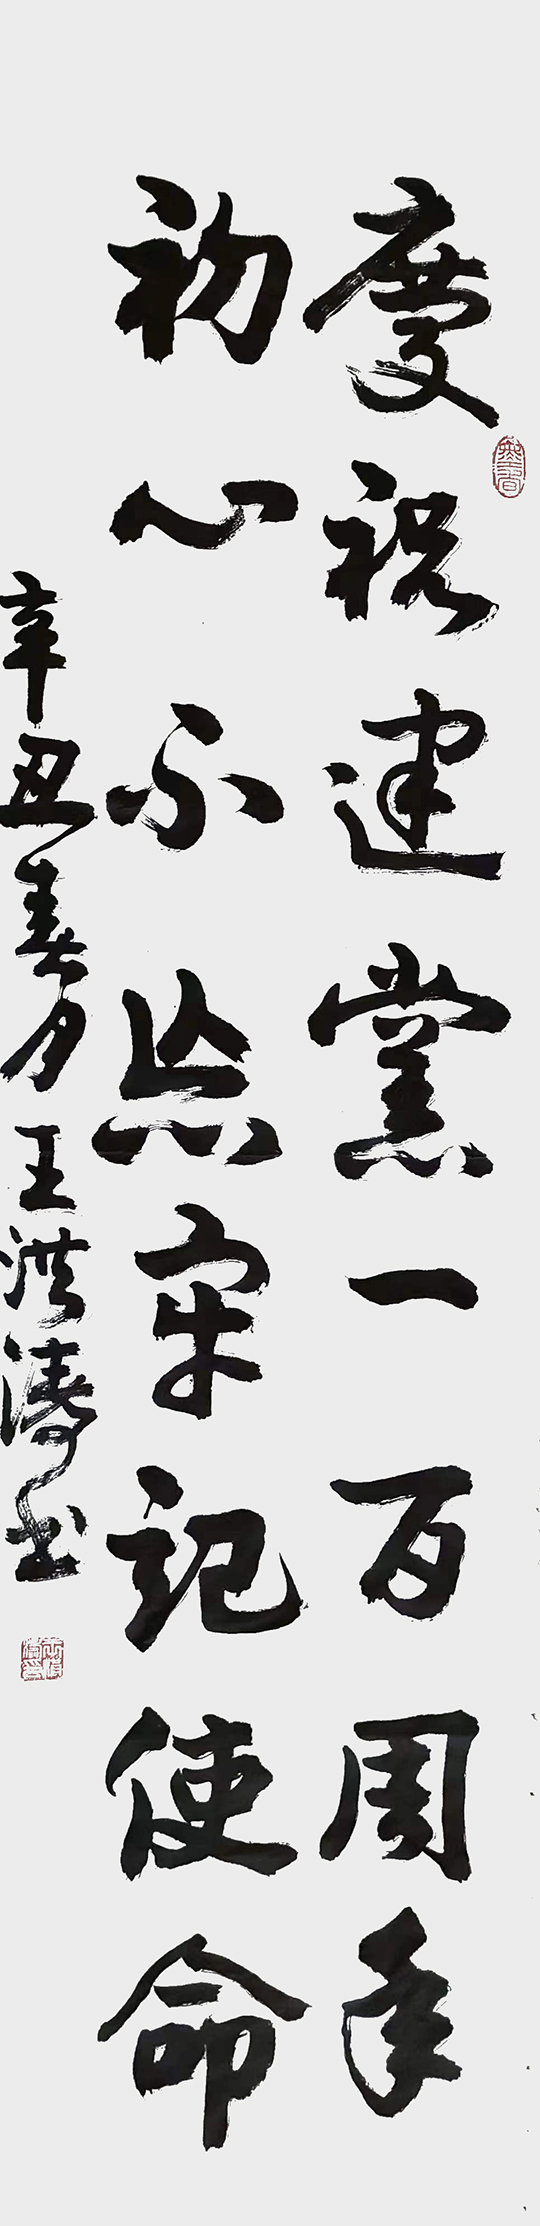 慶祝建黨一百周年
初心不忘牢记使命
辛丑春月王洪涛书